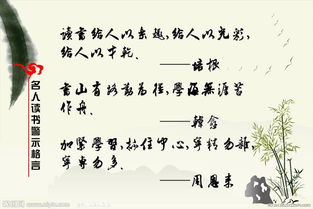 名人读书警示格言
读书给人以乐趣，给人以光彩，
给人以才干。
——培根
书山有路勤为径，学海无涯苦
作舟。
——韩愈
加紧学习，抓住中心，宁精勿杂，
宁专勿多。
——周恩来